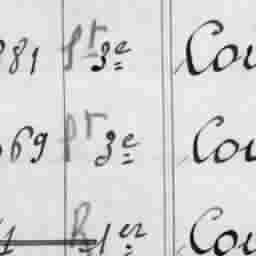 81 pr 3e Cou
69 pr 3e Cou
1er Cou